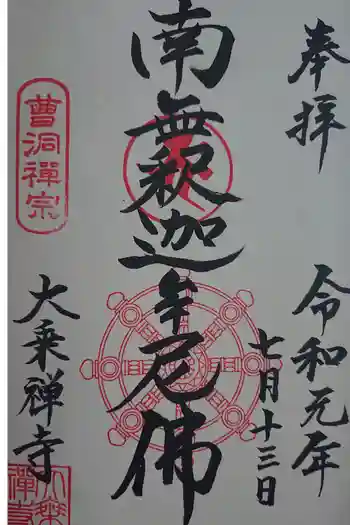 奉拝
令和元年
七月十三日
南無釈迦牟尼佛
曹洞禪宗
大乗禅寺
大乗禅寺